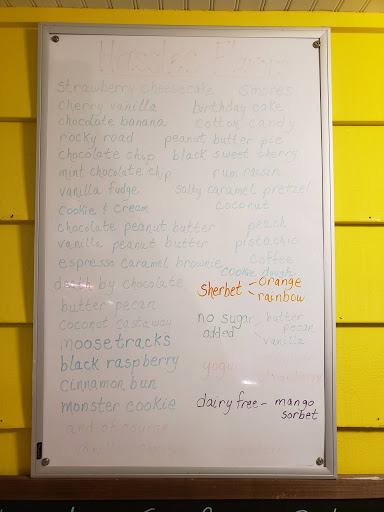 strawberry cheesecake
cherry vanilla
chocolate banana
rocky road
chocolate chip
mint chocolate chip
vanilla fudge
cookie & cream
chocolate peanut butter
vanilla peanut butter
espresso caramel brownie
death by chocolate
butter pecan
coconut castaway
moosetracks
black raspberry
cinnamon bun
monster cookie
and of course
smores
birthday cake
cotton candy
peanut butter pie
black sweet cherry
rum raisin
salty caramel pretzel
coconut
peach
pistachio
coffee
cookie dough
Sherbet - orange
- rainbow
no sugar added
butter pecan
vanilla
dairy free - mango
sorbet